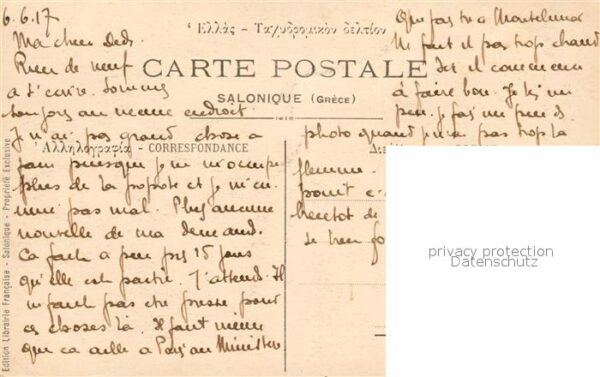 6.6.17
Ma chere Dedi.
Rien de neuf
a t'ecrire. Sommes
toujours au meme endroit.
Ἑλλὰς – Ταχυδρομικὸν δελτίον
CARTE POSTALE
SALONIQUE (GRÈCE)
Que fais tu a
Ni fait il pas trop chaud
Ici il commence
à faire bon. Je lis un
peu. Je fais un peu de
photo quand j'ai pas trop la
flemme.
Ἀλληλογραφία – CORRESPONDANCE
J'ai pas grand chose a
faire puisque je ne m'occupe
plus de la popote et je m'en
nuie pas mal. Plus aucune
nouvelle de ma demande.
Ca fait a peu pres 15 jours
qu'elle est partie. J'attend. Il
ne faut pas etre pressé pour
ces choses là. Il faut meme
que ca aille a Paris au Ministere
bientot de
Edition Librairie Française - Salonique - Propriété Exclusive
privacy protection
Datenschutz